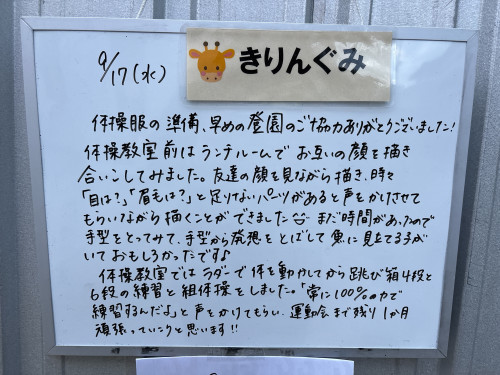 9/17(水)
きりんぐみ
体操服の準備、早めの登園のご協力ありがとうございました!
体操教室前はランチルームでお互いの顔を描き
合いこしてみました。友達の顔を見ながら描き、時々
「目は?」「眉毛は?」と足りないパーツがあると声をかけさせて
もらいながら描くことができました まだ時間があったので
手型をとってみて、手型から発想をとばして魚に見立てる子がい
ておもしろかったです♪
体操教室ではラダーで体を動かしてから跳び箱4段と
6段の練習と組体操をしました。「常に100%の力で
練習するんだよ」と声をかけてもらい、運動会まで残り1か月
頑張っていこうと思います!!